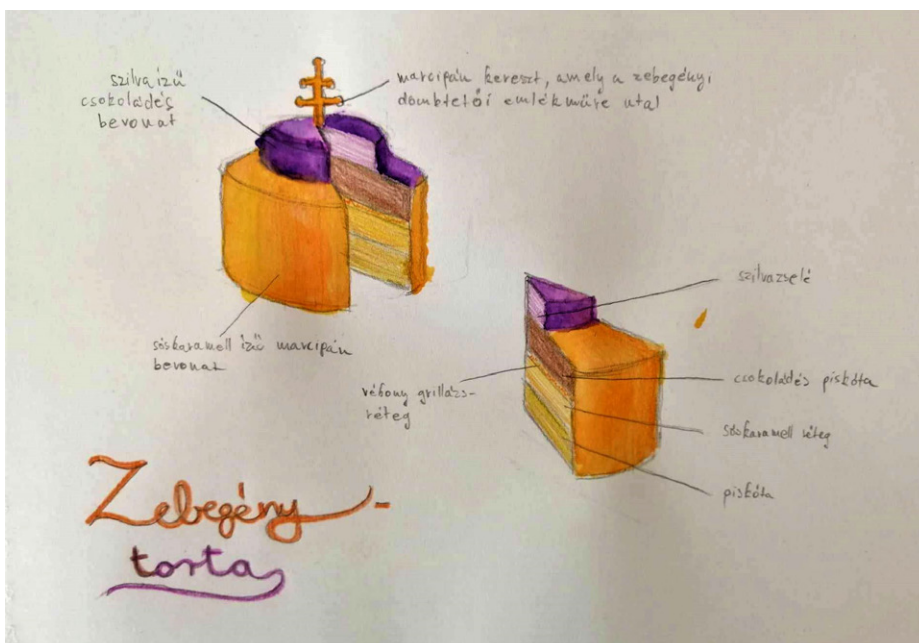 szilva ízű
csokoládés
bevonat
marcipán kereszt, amely a zebegényi
dombtetői emlékműre utal
szilvazselé
sóskaramell ízű marcipán
bevonat
vékony grillázs-
réteg
csokoládés piskóta
sóskaramell réteg
piskóta
Zebegény-
torta